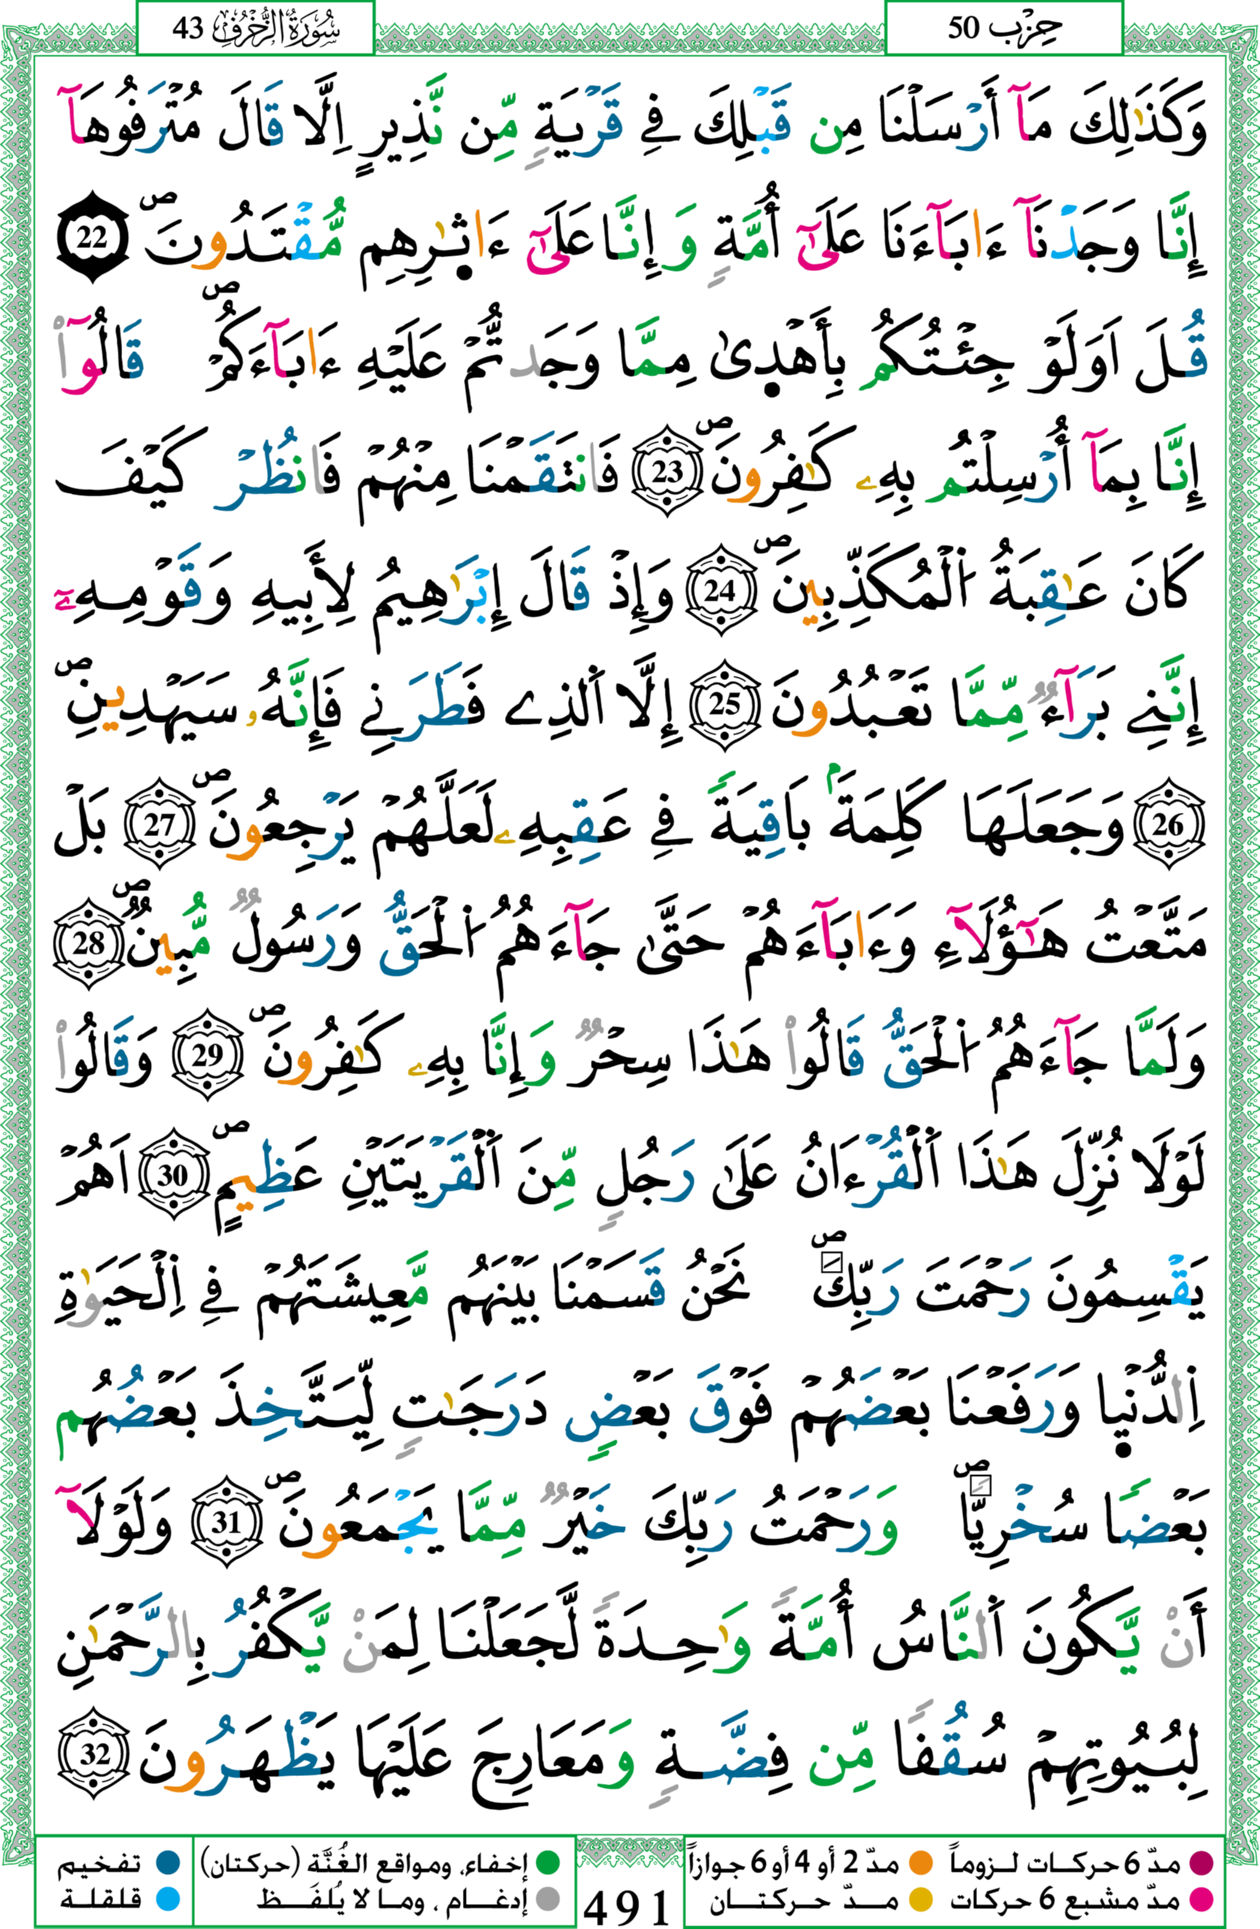 حِزْب 50
سُورَةُ الزُّخْرُفِ 43
وَكَذَٰلِكَ مَآ أَرْسَلْنَا مِن قَبْلِكَ فِے قَرْيَةٍ مِّن نَّذِيرٍ اِلَّا قَالَ مُتْرَفُوهَآ
إِنَّا وَجَدْنَآ ءَابَآءَنَا عَلَىٰٓ أُمَّةٍ وَإِنَّا عَلَىٰٓ ءَاثٰ۪رِهِم مُّقْتَدُونَۖ 22
قُلَ اَوَلَوْ جِئْتُكُم بِأَهْد۪ىٰ مِمَّا وَجَدتُّمْ عَلَيْهِ ءَابَآءَكُمْۖ قَالُوٓاْ
إِنَّا بِمَآ أُرْسِلْتُم بِهِۦ كَٰفِرُونَۖ 23 فَانتَقَمْنَا مِنْهُمْ فَانظُرْ كَيْفَ
كَانَ عَٰقِبَةُ اُ۬لْمُكَذِّبِينَۖ 24 وَإِذْ قَالَ إِبْرَٰهِيمُ لِأَبِيهِ وَقَوْمِهِۦٓ
إِنَّنِے بَرَآءٞ مِّمَّا تَعْبُدُونَ 25 إِلَّا اَ۬لذِے فَطَرَنِے فَإِنَّهُۥ سَيَهْدِينِۖ
26 وَجَعَلَهَا كَلِمَةَۢ بَاقِيَةٗ فِے عَقِبِهِۦ لَعَلَّهُمْ يَرْجِعُونَۖ 27 بَلْ
مَتَّعْتُ هَٰٓؤُلَآءِ وَءَابَآءَهُمْ حَتَّىٰ جَآءَهُمُ اُ۬لْحَقُّ وَرَسُولٞ مُّبِينٞۖ 28
وَلَمَّا جَآءَهُمُ اُ۬لْحَقُّ قَالُواْ هَٰذَا سِحْرٞ وَإِنَّا بِهِۦ كَٰفِرُونَۖ 29 وَقَالُواْ
لَوْلَا نُزِّلَ هَٰذَا اَ۬لْقُرْءَانُ عَلَىٰ رَجُلٍ مِّنَ اَ۬لْقَرْيَتَيْنِ عَظِيمٍۖ 30 اَهُمْ
يَقْسِمُونَ رَحْمَتَ رَبِّكَۖ نَحْنُ قَسَمْنَا بَيْنَهُم مَّعِيشَتَهُمْ فِے اِ۬لْحَيَوٰةِ
اِ۬لدُّنْي۪ا وَرَفَعْنَا بَعْضَهُمْ فَوْقَ بَعْضٍ دَرَجَٰتٍ لِّيَتَّخِذَ بَعْضُهُم
بَعْضاً سُخْرِيّاًۖ وَرَحْمَتُ رَبِّكَ خَيْرٞ مِّمَّا يَجْمَعُونَۖ 31 وَلَوْلَآ
أَنْ يَّكُونَ اَ۬لنَّاسُ أُمَّةٗ وَٰحِدَةٗ لَّجَعَلْنَا لِمَنْ يَّكْفُرُ بِالرَّحْمَٰنِ
لِبُيُوتِهِمْ سُقُفاً مِّن فِضَّةٍ وَمَعَارِجَ عَلَيْهَا يَظْهَرُونَ 32
مدّ 6 حركات لزوماً
مدّ 2 أو 4 أو 6 جوازاً
مدّ مشبع 6 حركات
مدّ حركتان
491
إخفاء، ومواقع الغُنَّة (حركتان)
إدغام ، وما لا يُلفَظ
تفخيم
قلقلة